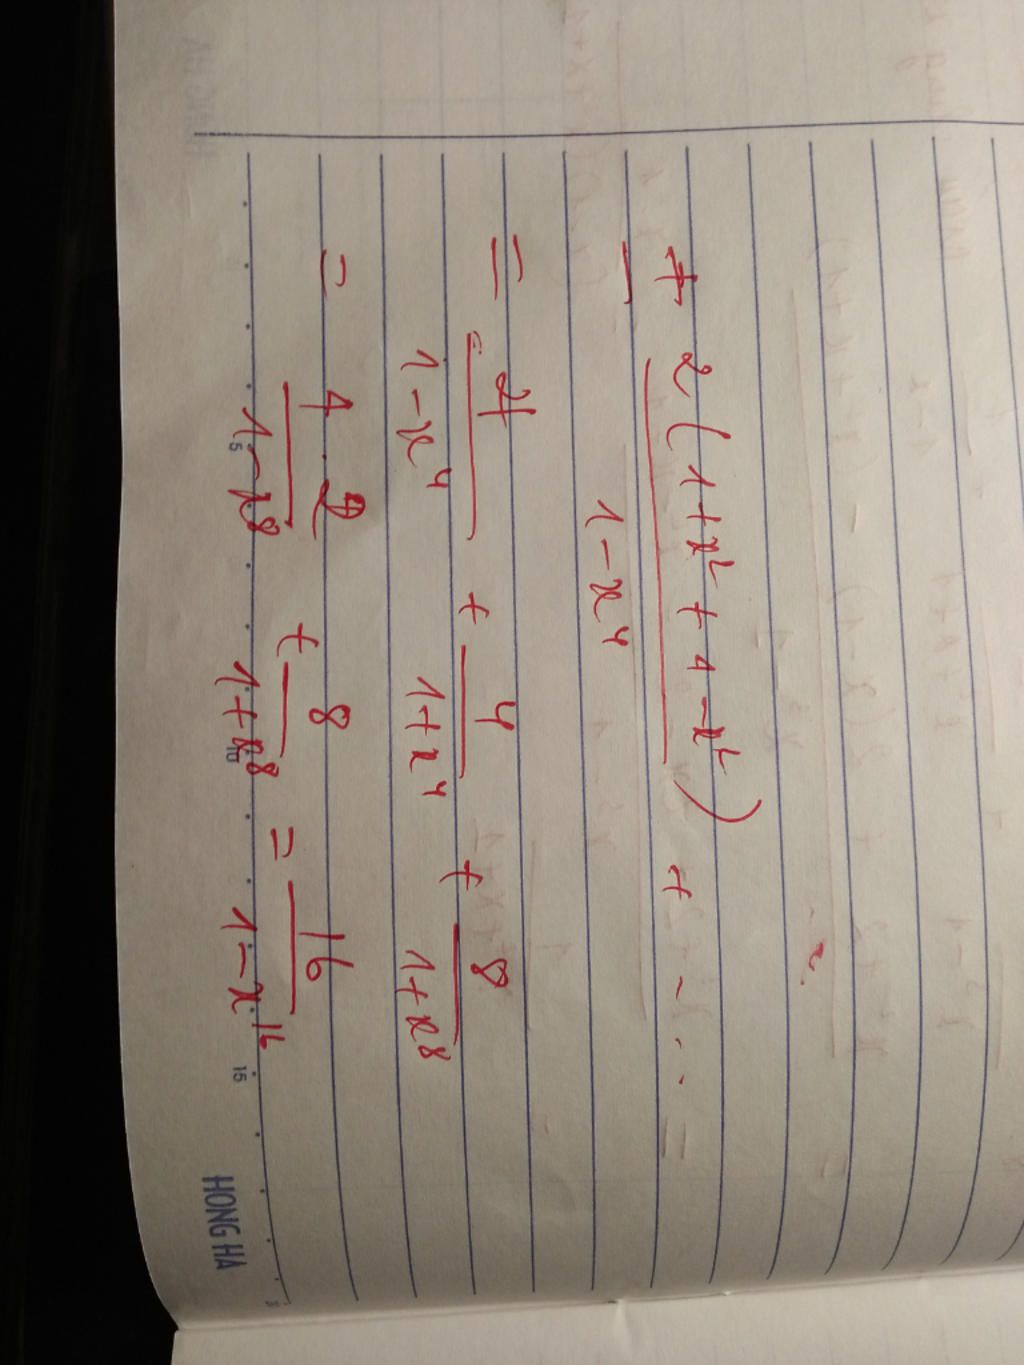 + 2(1+x² + 1-x²) / 1-x⁴ + - . . =
= 4/1-x⁴ + 4/1+x⁴ + 8/1+x⁸
= 4.2/1-x⁸ + 8/1+x⁸ = 16/1-x¹⁶
5 10 15
HONG HA